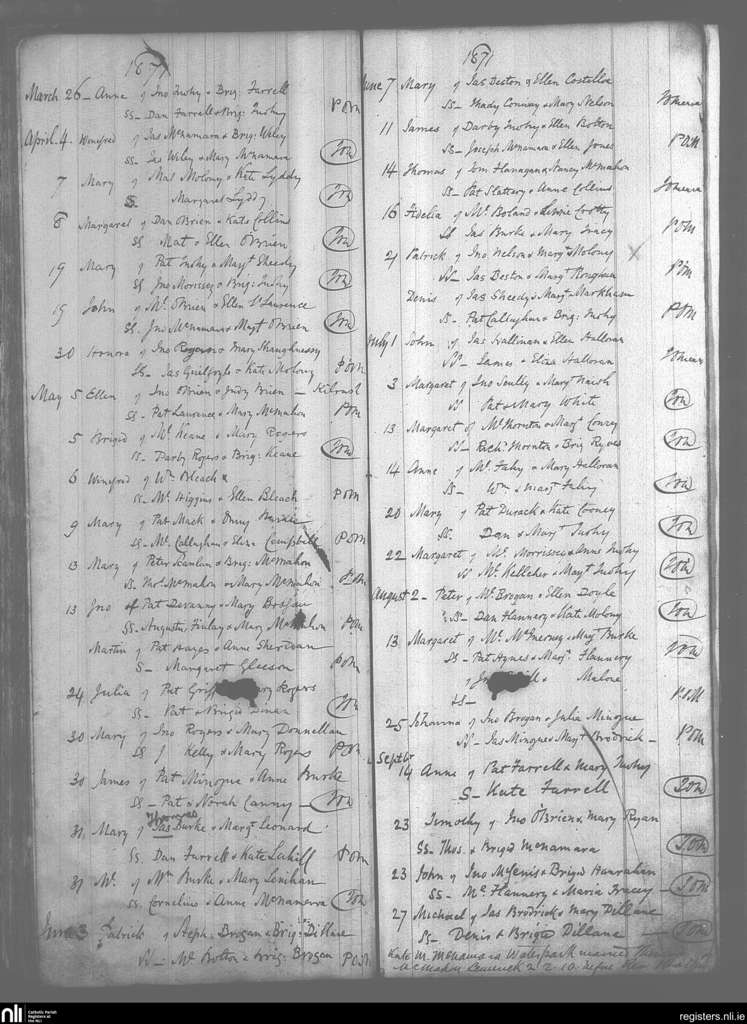 1871
March 26 - Anne of Jno Tuohy & Brig. Farrell
SS - Dan Farrell & Brig: Tuohy POM
April 4. Winifred of Jas McNamara & Brig: Wiley
SS - Jas Wiley & Mary McNamara
7 Mary of Molony & Kate Lyddy
S. Margaret Lyddy
8 Margaret of Dan O'Brien & Kate Collins
SS Mat & Ellen O'Brien
19 Mary of Pat Tuohy & Margt Sheedy
SS Jno Morrissey & Brig: Tuohy
19 John of Ml. O'Brien & Ellen St Laurence
SS. Jno McNamara & Margt O'Brien
30 Honora of Jno Rogers & Mary Shaughnessy
SS - Jas Guilfoyle & Kate Molony POM
May 5 Ellen of Jno O'Brien & Judy Brien - Kilrush
SS - Pat Laurence & Mary McMahon POM
5 Brigid of Ml. Keane & Mary Rogers
SS - Darby Rogers & Brig: Keane
6 Winifred of Wm Bleach &
SS - Ml. Higgins & Ellen Bleach POM
9 Mary of Pat Mack &
SS - Ml. Callaghan & Eliza Campbell POM
13 Mary of Peter Scanlan & Brig: McMahon
SS. Thos. McMahon & Mary McMahon POM
13 Jno of Pat Devanny & Mary
SS - Augustin Finlay & Mary McMahon POM
Martin of Pat Hayes & Anne Sheridan
S - Margaret Gleeson POM
24 Julia of Pat Rogers
SS - Pat & Brigid
30 Mary of Jno Rogers & Mary Donnellan
SS J Kelly & Mary Rogers POM
30 James of Pat Minogue & Anne Burke
SS - Pat & Norah Canny
Thomas
31 Mary of Jas Burke & Margt Leonard
SS. Dan Farrell & Kate Cahill POM
31 Ml. of Burke & Mary Lenihan
SS. Cornelius & Anne McNamara
June 3 Patrick of Steph: Brogan & Brig: Dillane
SS - Ml Bolton & Brig: Brogan POM
1871
June 7 Mary of Jas Beston & Ellen Costelloe
SS - Thady Conway & Mary Nelson
11 James of Darby Tuohy & Ellen Bolton
SS - Joseph McNamara & Ellen Jones POM
14 Thomas of Tom Flanagan & Nancy McMahon
SS - Pat Slattery & Anne Collins
16 Fidelia of Ml. Boland & Crotty
SS Jas Burke & Mary Tracy POM
21 Patrick of Jno. Nelson & Margt Molony
SS - Jas Beston & Margt POM
Denis of Jas Sheedy & Margt Markham
SS - Pat Callaghan & Brig: Tuohy POM
July 1 John of Jas Hallinan & Ellen Halloran
SS - James & Eliza Halloran
3 Margaret of Jno Scully & Margt
SS Pat & Mary White
13 Margaret of Ml Thornton & Margt Conroy
SS - Richd Thornton & Brig Ryves
14 Anne of Ml. Fahy & Mary Halloran
SS - Wm & Margt Fahy
20 Mary of Pat Durack & Kate Cooney
SS. Dan & Margt Tuohy
22 Margaret of Ml. Morrissey & Anne Tuohy
SS Ml. Kelleher & Margt Tuohy
August 2 - Peter of Ml. Brogan & Ellen Doyle
SS - Dan Flannery & Kate Molony
13 Margaret of Ml. McInerney & Margt Burke
SS - Pat Hynes & Margt. Flannery
of Malone
SS - POM
25 Johanna of Jno Brogan & Julia Minogue
SS - Jas Minogue & Margt Brodrick - POM
Septbr
14 Anne of Pat Farrell & Mary Tuohy
S - Kate Farrell
23 Timothy of Jno O'Brien & Mary Ryan
SS. Thos. & Brigid McNamara
23 John of Jno McEnis & Brigid Hanrahan
SS - Ml Flannery & Maria Tracey
27 Michael of Jas Brodrick & Mary Dillane
SS - Denis & Brigid Dillane
Kate M. McNamara Waterpark married
McMahon Limerick 2. 2. 10. before
nli Catholic Parish Registers at the NLI
registers.nli.ie